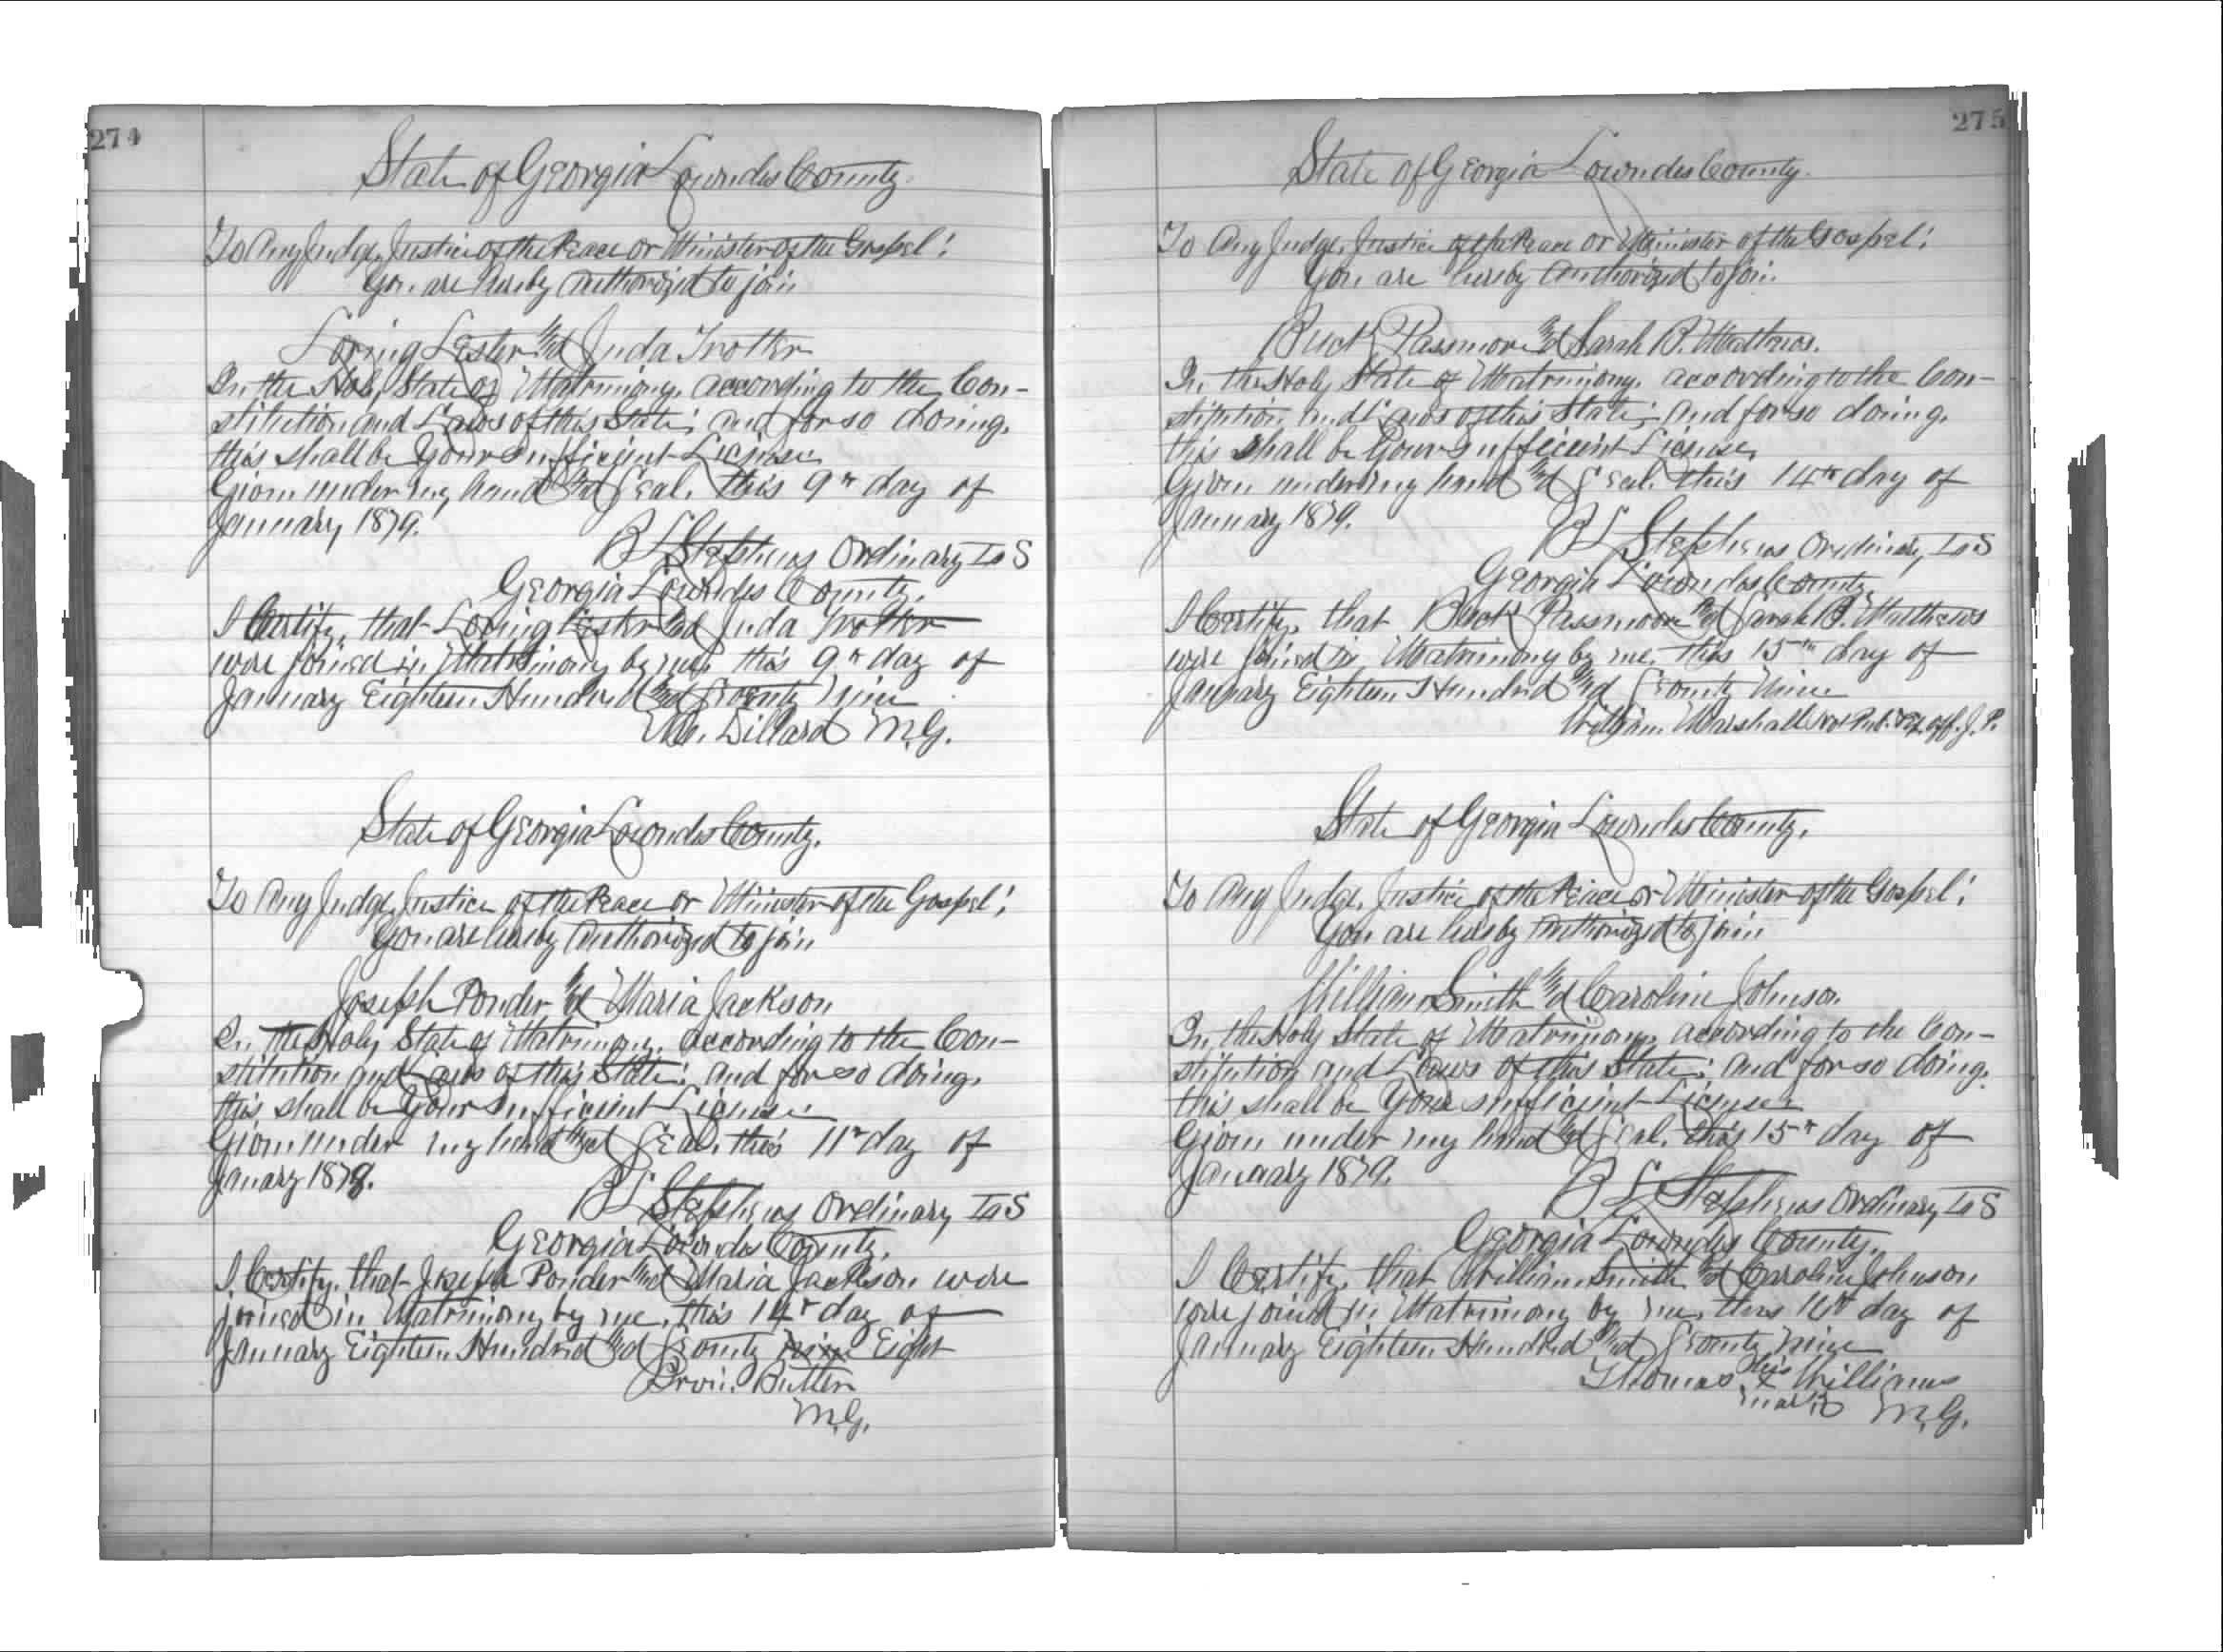 274
State of Georgia Lowndes County.
To Any Judge, Justice of the Peace or Minister of the Gospel:
You are hereby Authorized to join
Loring Lester And Juda Trotter
In the Holy State of Matrimony, according to the Con-
stitution and Laws of this State; and for so doing,
this shall be Your Sufficient License
Given under my hand And Seal, this 9th day of
January 1879.
B L Stephens Ordinary L S
Georgia Lowndes County.
I Certify, that Loring Lester And Juda Trotter
were joined in Matrimony by me this 9th day of
January Eighteen Hundred And Seventy Nine
Dillard M.G.
State of Georgia Lowndes County.
To Any Judge, Justice of the Peace or Minister of the Gospel:
You are hereby Authorized to join
Joseph Ponder And Maria Jackson
In the Holy State of Matrimony, according to the Con-
stitution and Laws of this State; and for so doing,
this shall be Your Sufficient License
Given under my hand And Seal, this 11th day of
January 1879.
B L Stephens Ordinary L S
Georgia Lowndes County.
I Certify, that Joseph Ponder And Maria Jackson were
joined in Matrimony by me, this 14th day of
January Eighteen Hundred And Seventy Nine Eight
Butler
M.G.
275
State of Georgia Lowndes County.
To Any Judge, Justice of the Peace or Minister of the Gospel:
You are hereby Authorized to join
Buck Passmore And Sarah B. Mathews.
In the Holy State of Matrimony, according to the Con-
stitution and Laws of this State; And for so doing,
this shall be Your Sufficient License,
Given under my hand And Seal, this 14th day of
January 1879.
B L Stephens Ordinary, L S
Georgia Lowndes County,
I Certify, that Buck Passmore And Sarah B. Matthews
were joined in Matrimony by me, this 15th day of
January Eighteen Hundred And Seventy Nine
William Marshall Not Pub. & Ex. off. J. P.
State of Georgia Lowndes County.
To Any Judge, Justice of the Peace or Minister of the Gospel:
You are hereby Authorized to join
William Smith And Caroline Johnson
In the Holy State of Matrimony, according to the Con-
stitution and Laws of this State; And for so doing,
this shall be Your sufficient License
Given under my hand And Seal, this 15th day of
January 1879.
B L Stephens Ordinary L S
Georgia Lowndes County.
I Certify, that William Smith And Caroline Johnson
were joined in Matrimony by me, this 16th day of
January Eighteen Hundred And Seventy Nine
Thomas his x mark Williams
M.G.